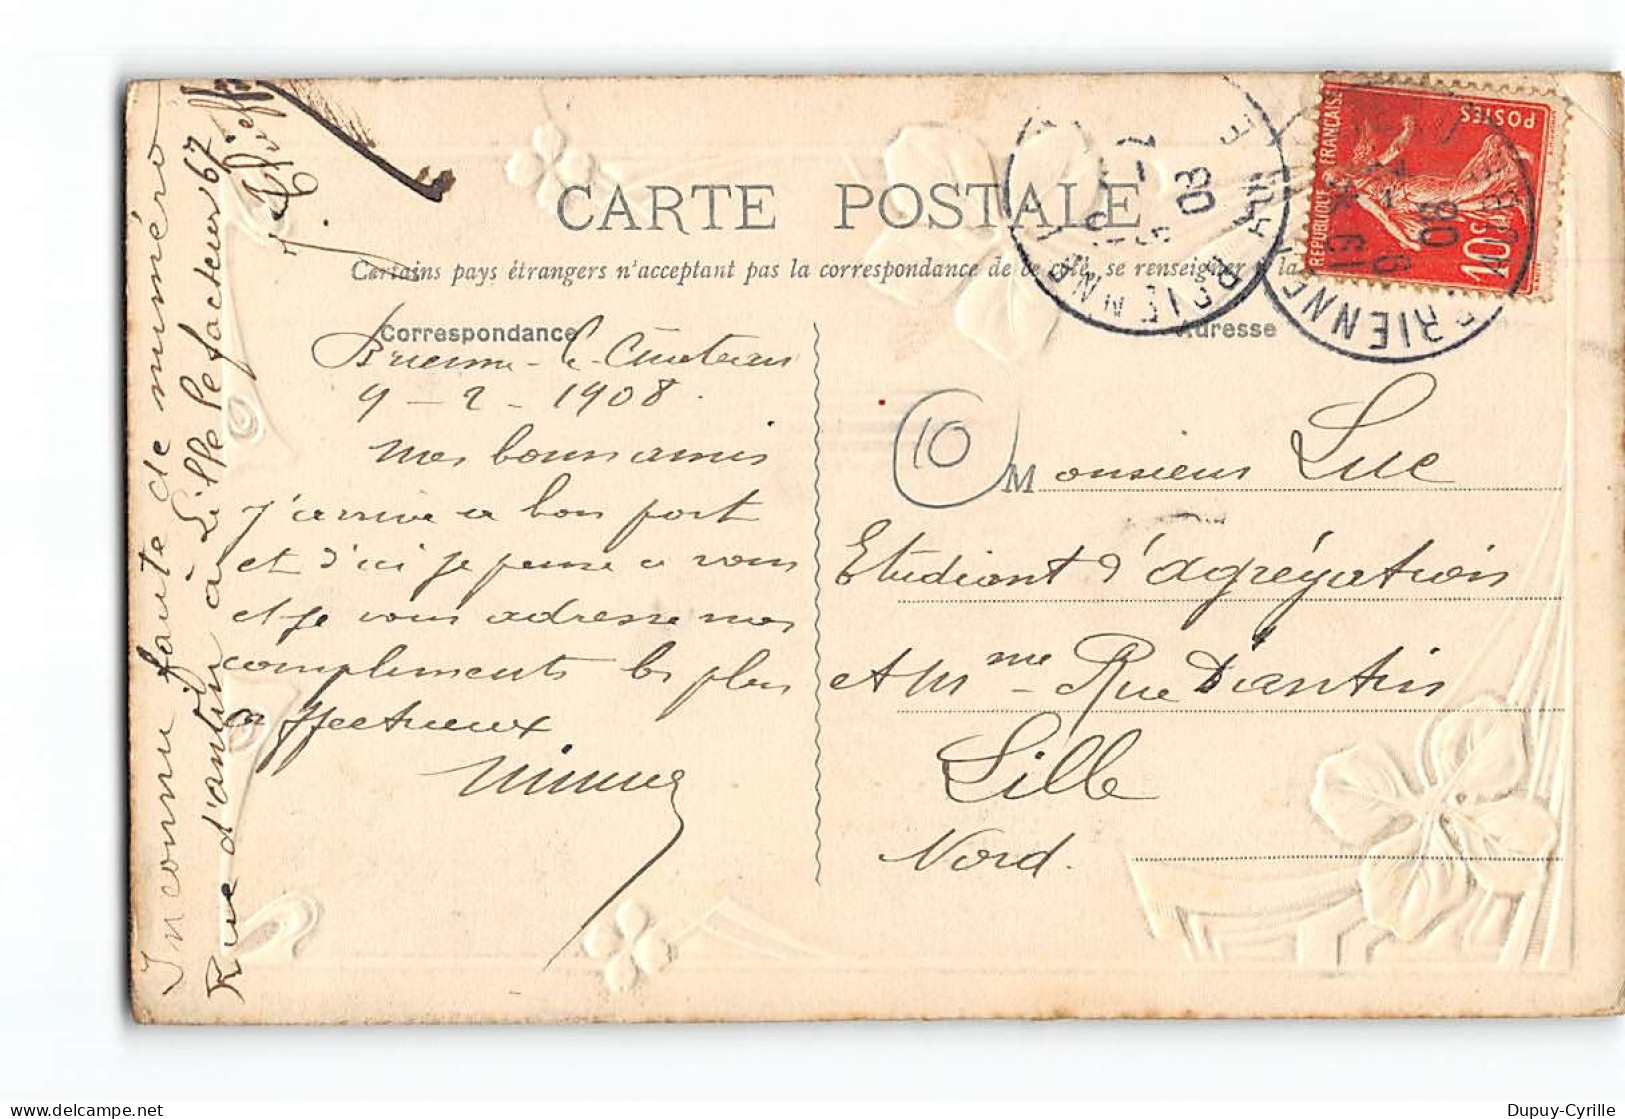 CARTE POSTALE
Certains pays étrangers n'acceptent pas la correspondance de ce côté, se renseigner à la
Correspondance
Adresse
Brienne-le-Château
9-2-1908.
Mes bons amis
j'arrive a bon port
et d'ici je pense a vous
et je vous adresse mes
compliments les plus
affectueux
10
Monsieur Luc
Etudiant d'agrégation
et Mme Rue D'antin
Lille
Nord.
Inconnu faute de numméro
Rue d'antin à Lille le facteur 67
REPUBLIQUE FRANÇAISE
POSTES
10c
BRIENNE
08
BRIENNE
08
Dupuy-Cyrille